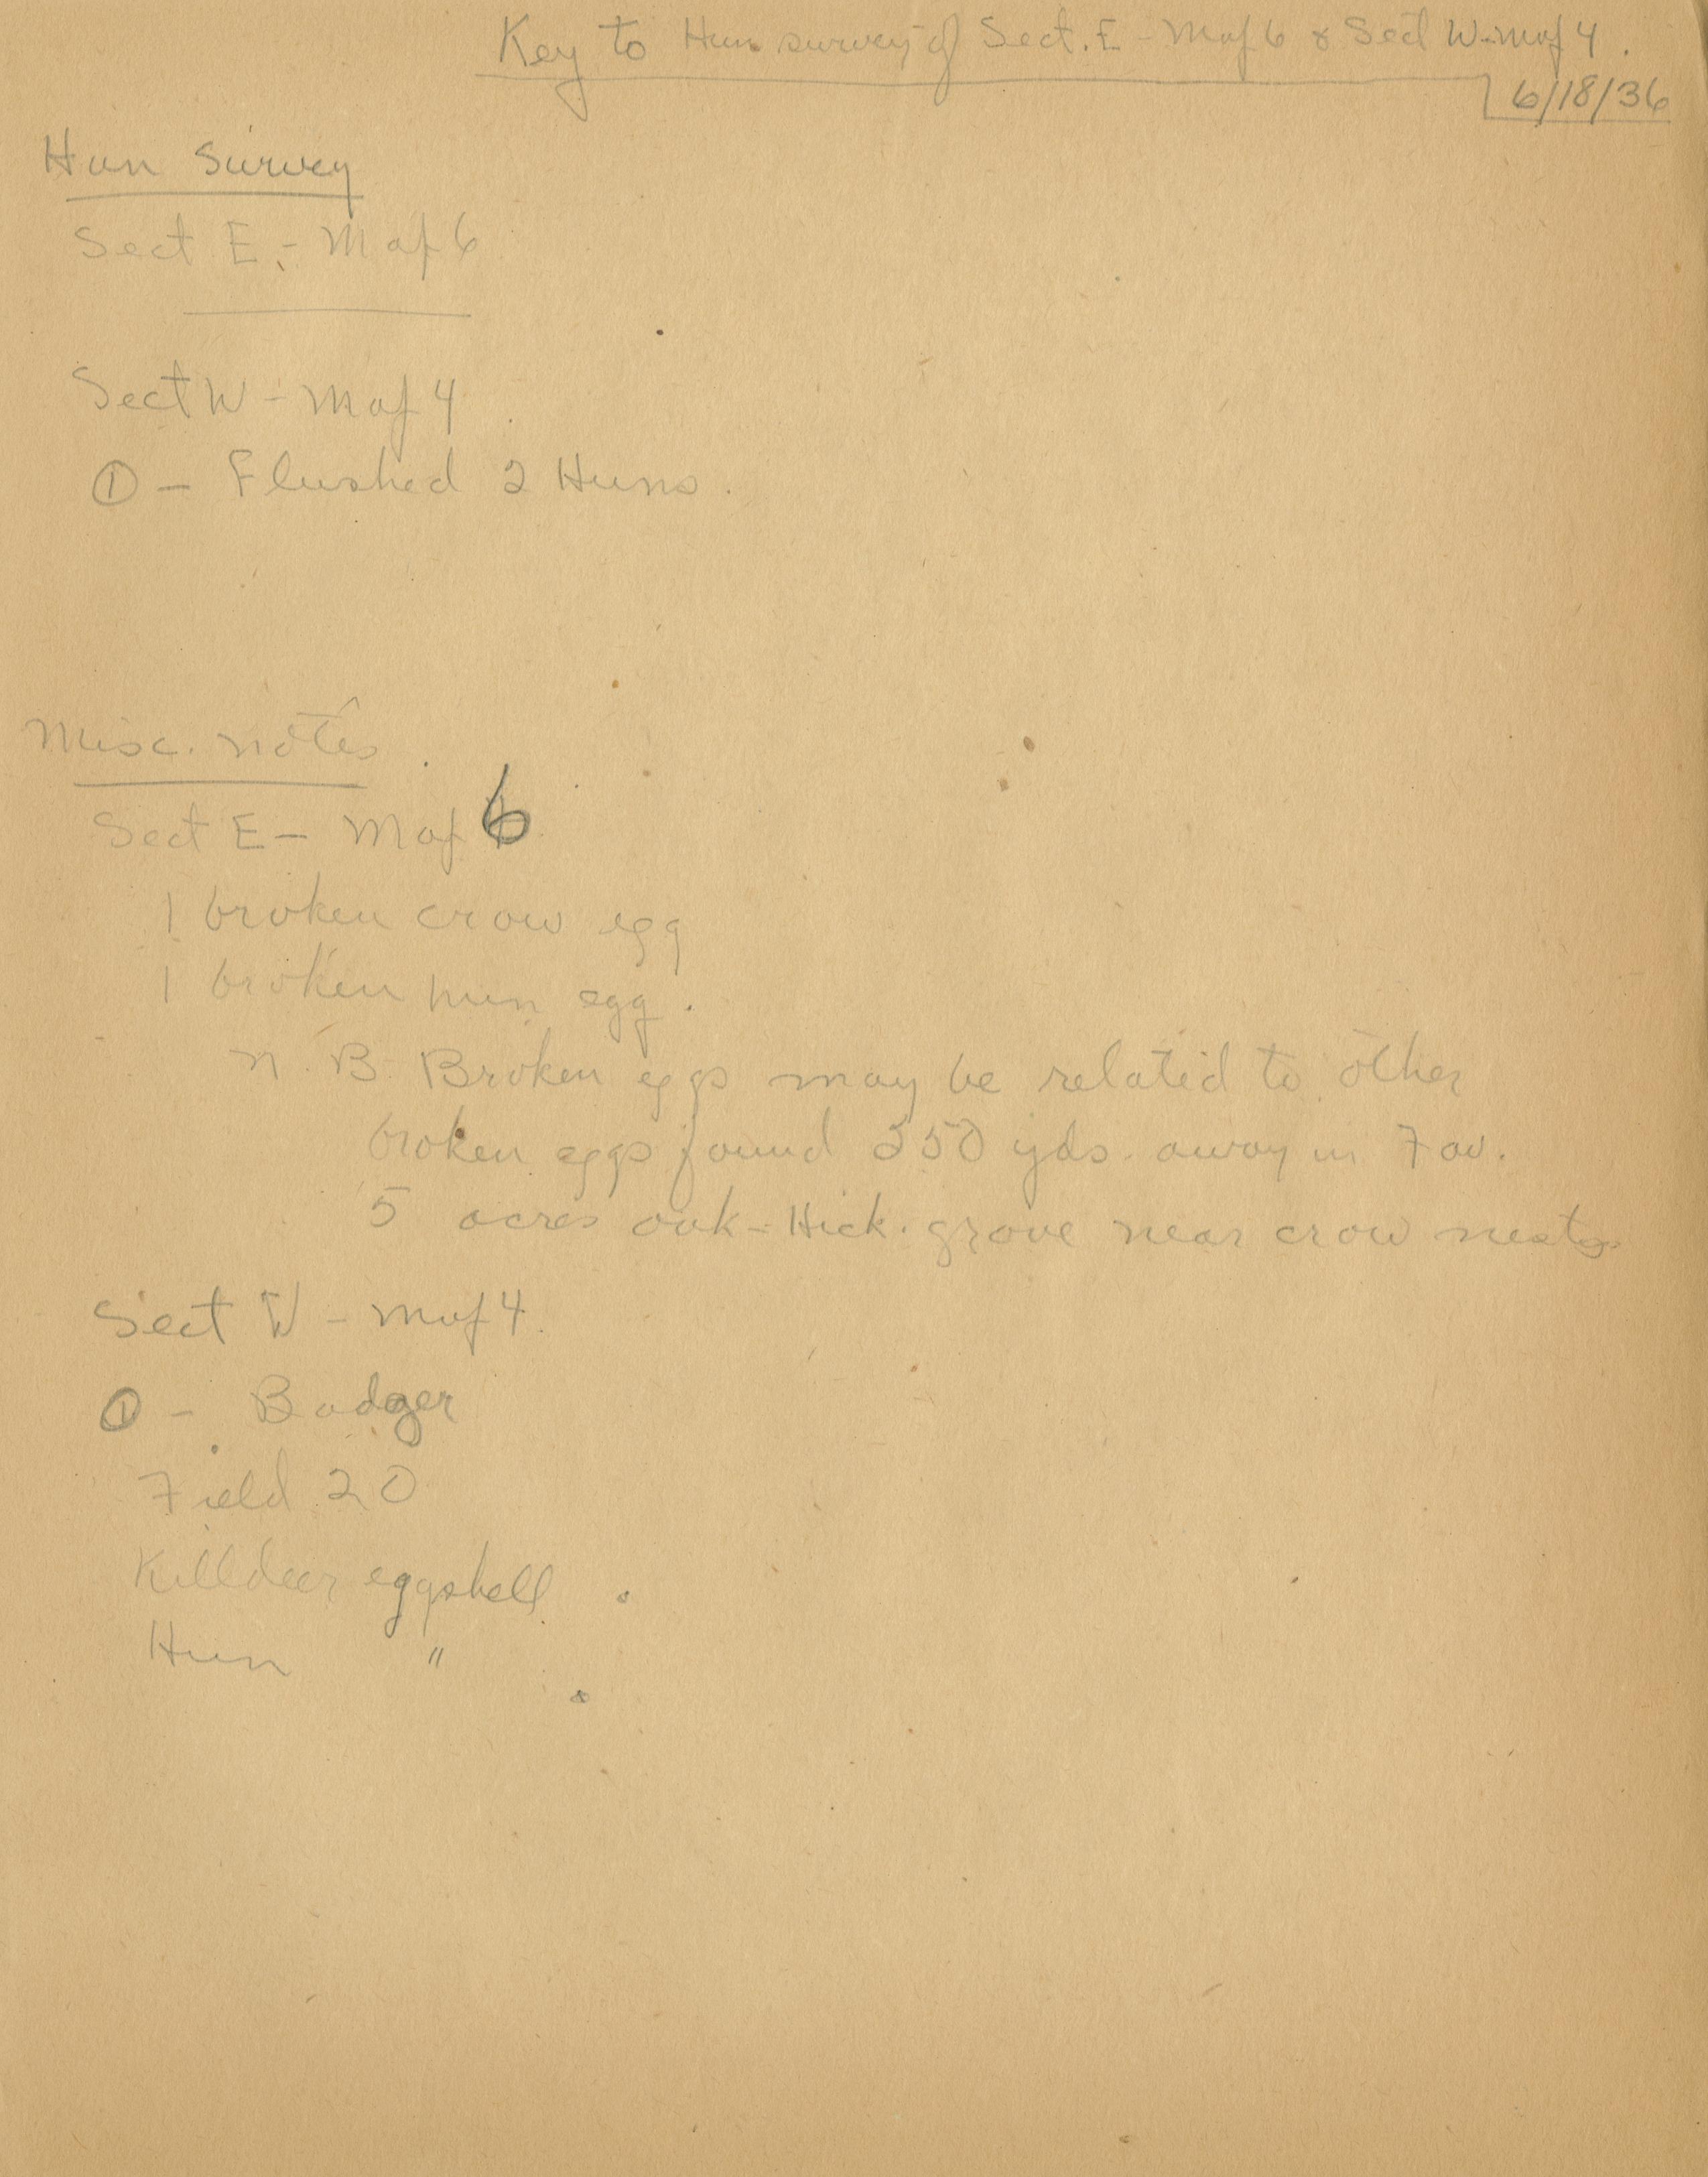 Key to Hun survey of Sect. E - Map 6 & Sect W - Map 4.
6/18/36
Hun Survey
Sect E. - Map 6
Sect W - Map 4
① - Flushed 2 Huns.
Misc. notes
Sect E - Map 6
1 broken crow egg
1 broken hun egg.
N.B. Broken eggs may be related to other
broken eggs found 350 yds. away in Fav.
5 acres oak-Hick. grove near crow nest
Sect W - Map 4.
① - Badger
Field 20
Killdeer eggshell
Hun "